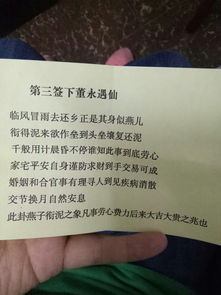 第三签下董永遇仙
临风冒雨去还乡正是其身似燕儿
衔得泥来欲作垒到头垒壤复还泥
千般用计晨昏不停谁知此事到底劳心
家宅平安自身谨防求财到手交易可成
婚姻和合官事有理寻人到见疾病消散
交节换月自然安息
此卦燕子衔泥之象凡事劳心费力后来大吉大贵之兆也